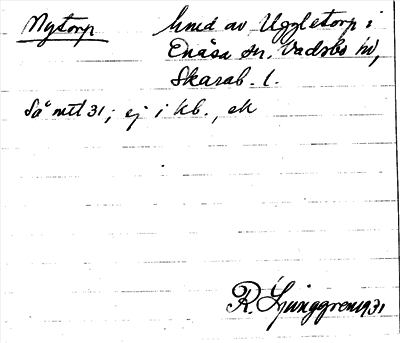 Nytorp hmd av Uggletorp i
Enåsa sn. Vadsbo hd,
Skarab. l.
Så mtl 31; ej i kb., ek
R. Ljunggren 1931